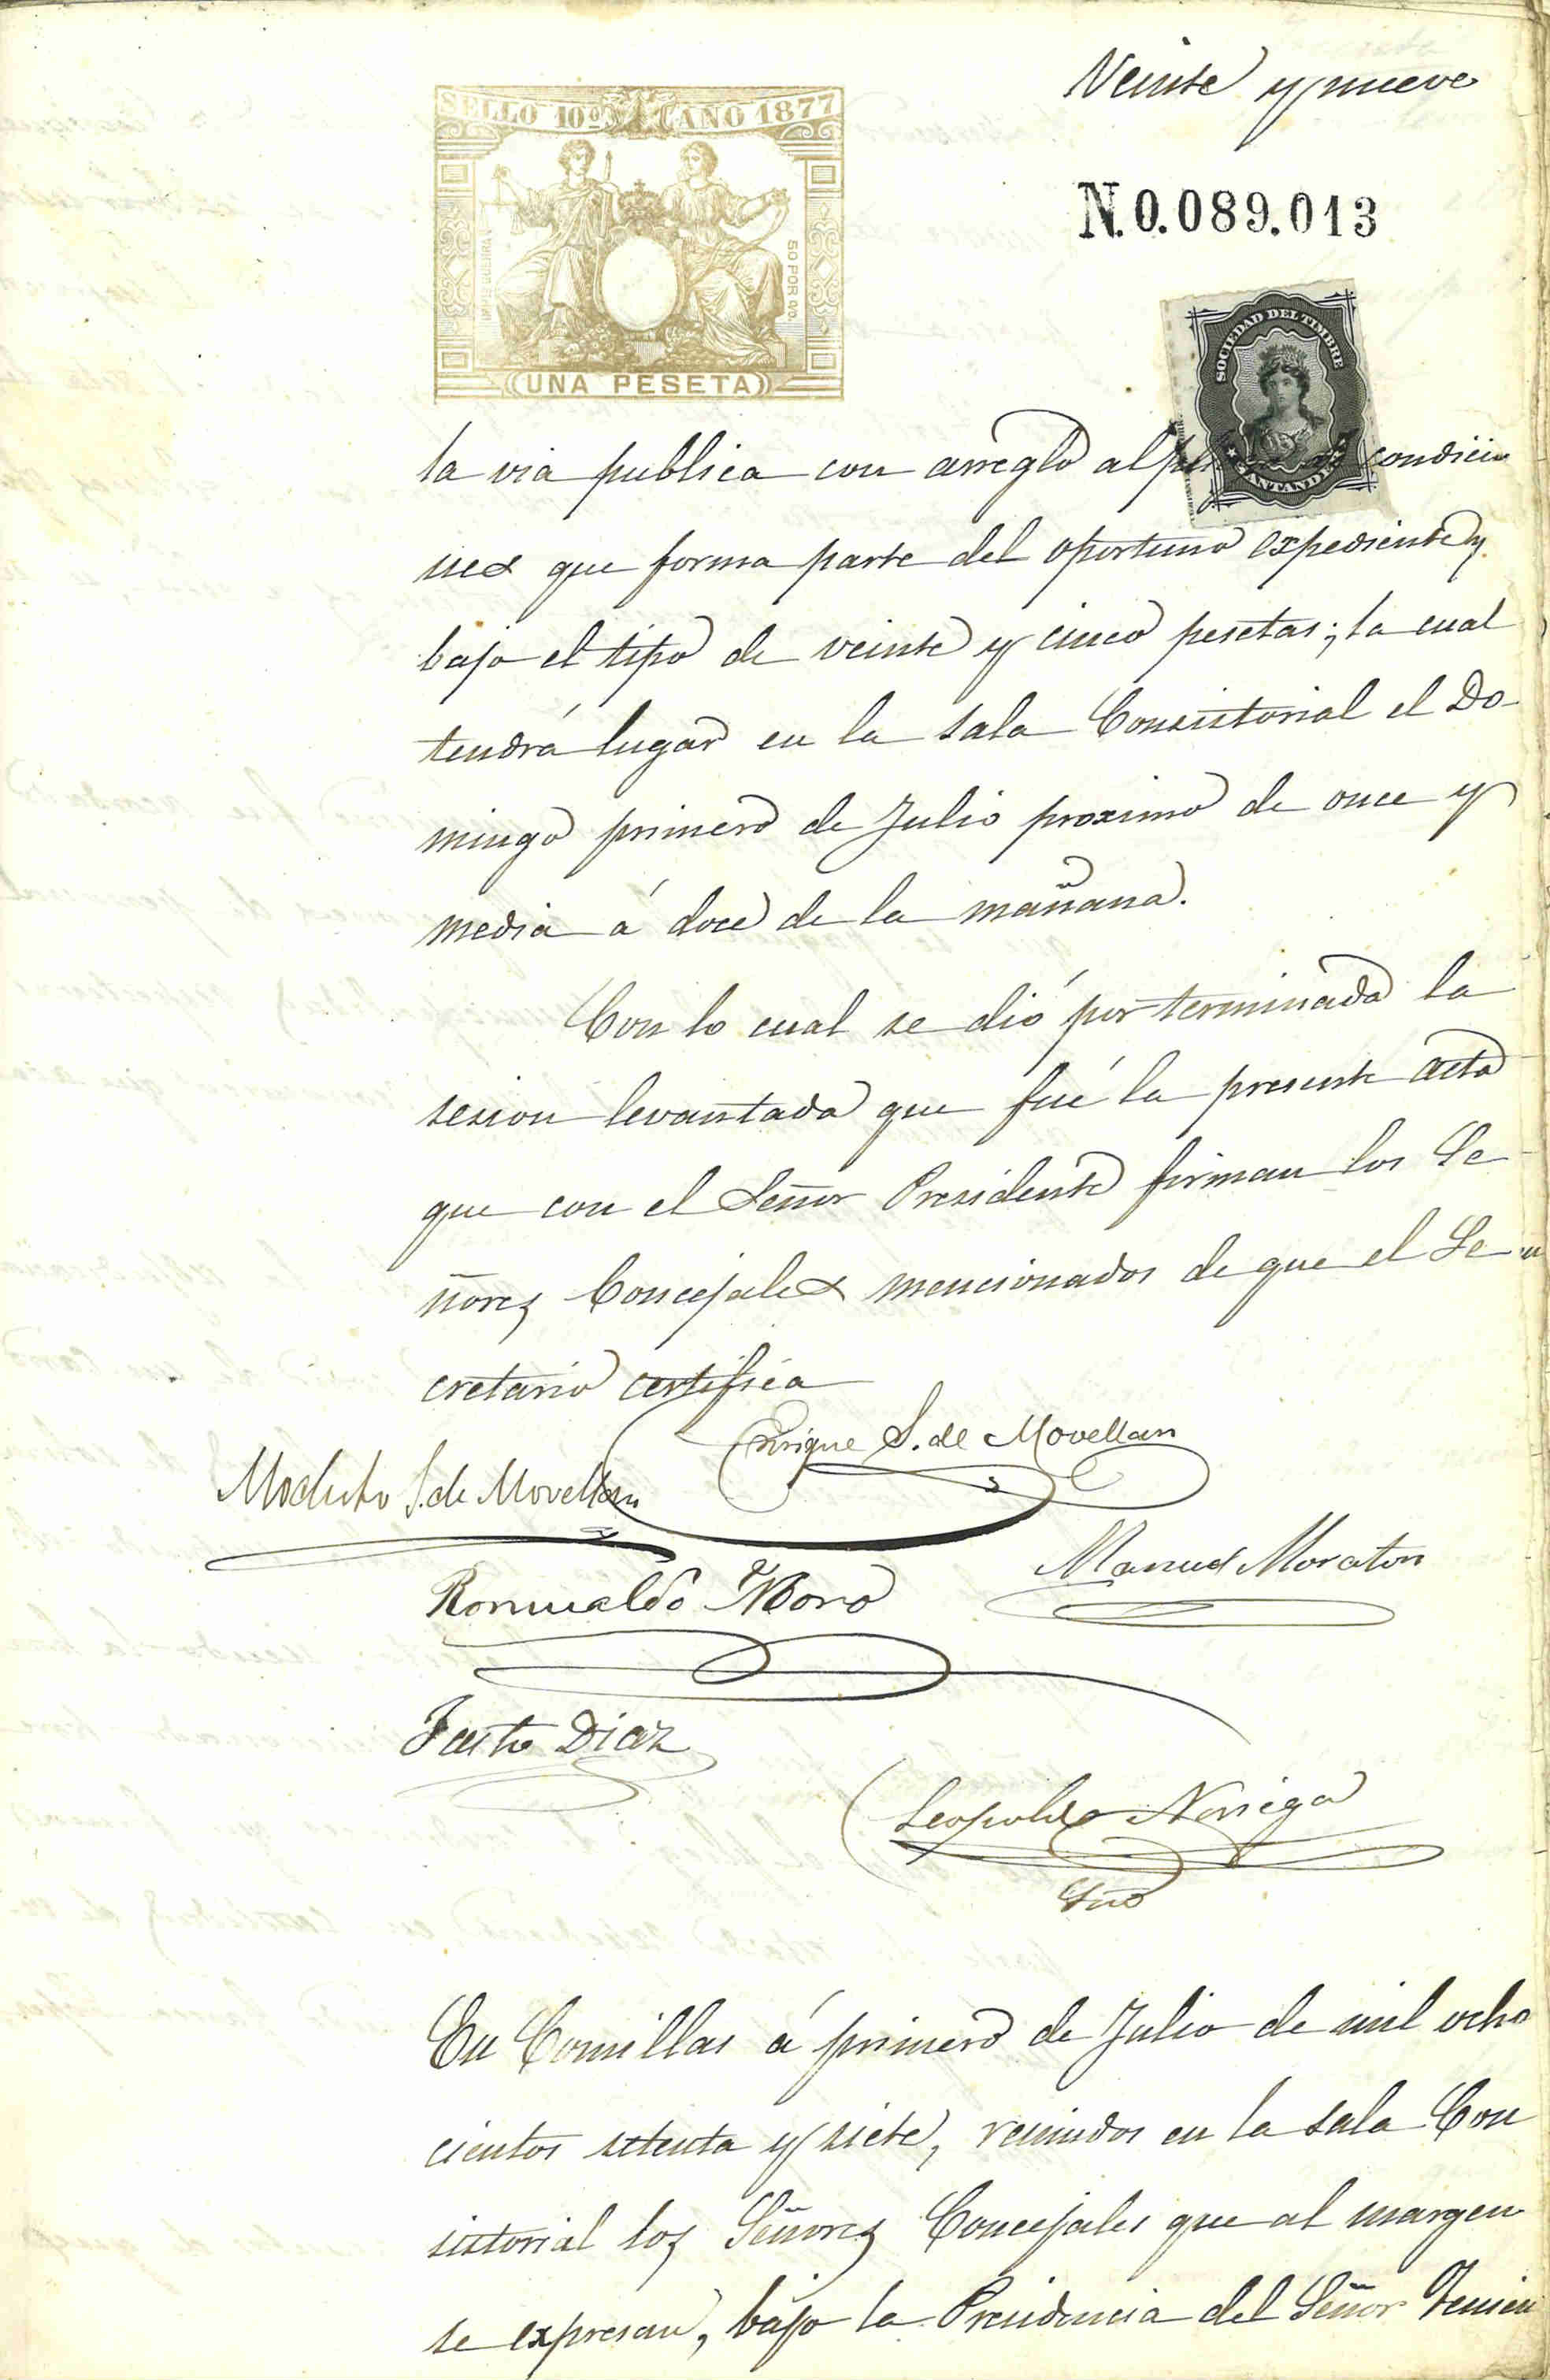 Veinte y nueve
SELLO 10º AÑO 1877
50 POR 0/0.
UNA PESETA
N.0.089.013
SOCIEDAD DEL TIMBRE
SANTANDER
la via publica con arreglo al condicio
nes que forma parte del oportuno expediente y
bajo el tipo de veinte y cinco pesetas; la cual
tendrá lugar en la sala Consistorial el Do-
mingo primero de Julio proximo de once y
media á doce de la mañana.
Con lo cual se dió por terminada la
sesion levantada que fué la presente acta
que con el Señor Presidente firman los Se
ñores Concejales mencionados de que el Se-
cretario certifica
Enrique S. de Movellan
Modesto S. de Movellan
Manuel Moraton
Romualdo Moro
Justo Diaz
Leopoldo Noriega
Srio
En Comillas á primero de Julio de mil ocho
cientos setenta y siete, reunidos en la sala Con
sistorial los Señores Concejales que al margen
se expresan, bajo la Presidencia del Señor Tenien